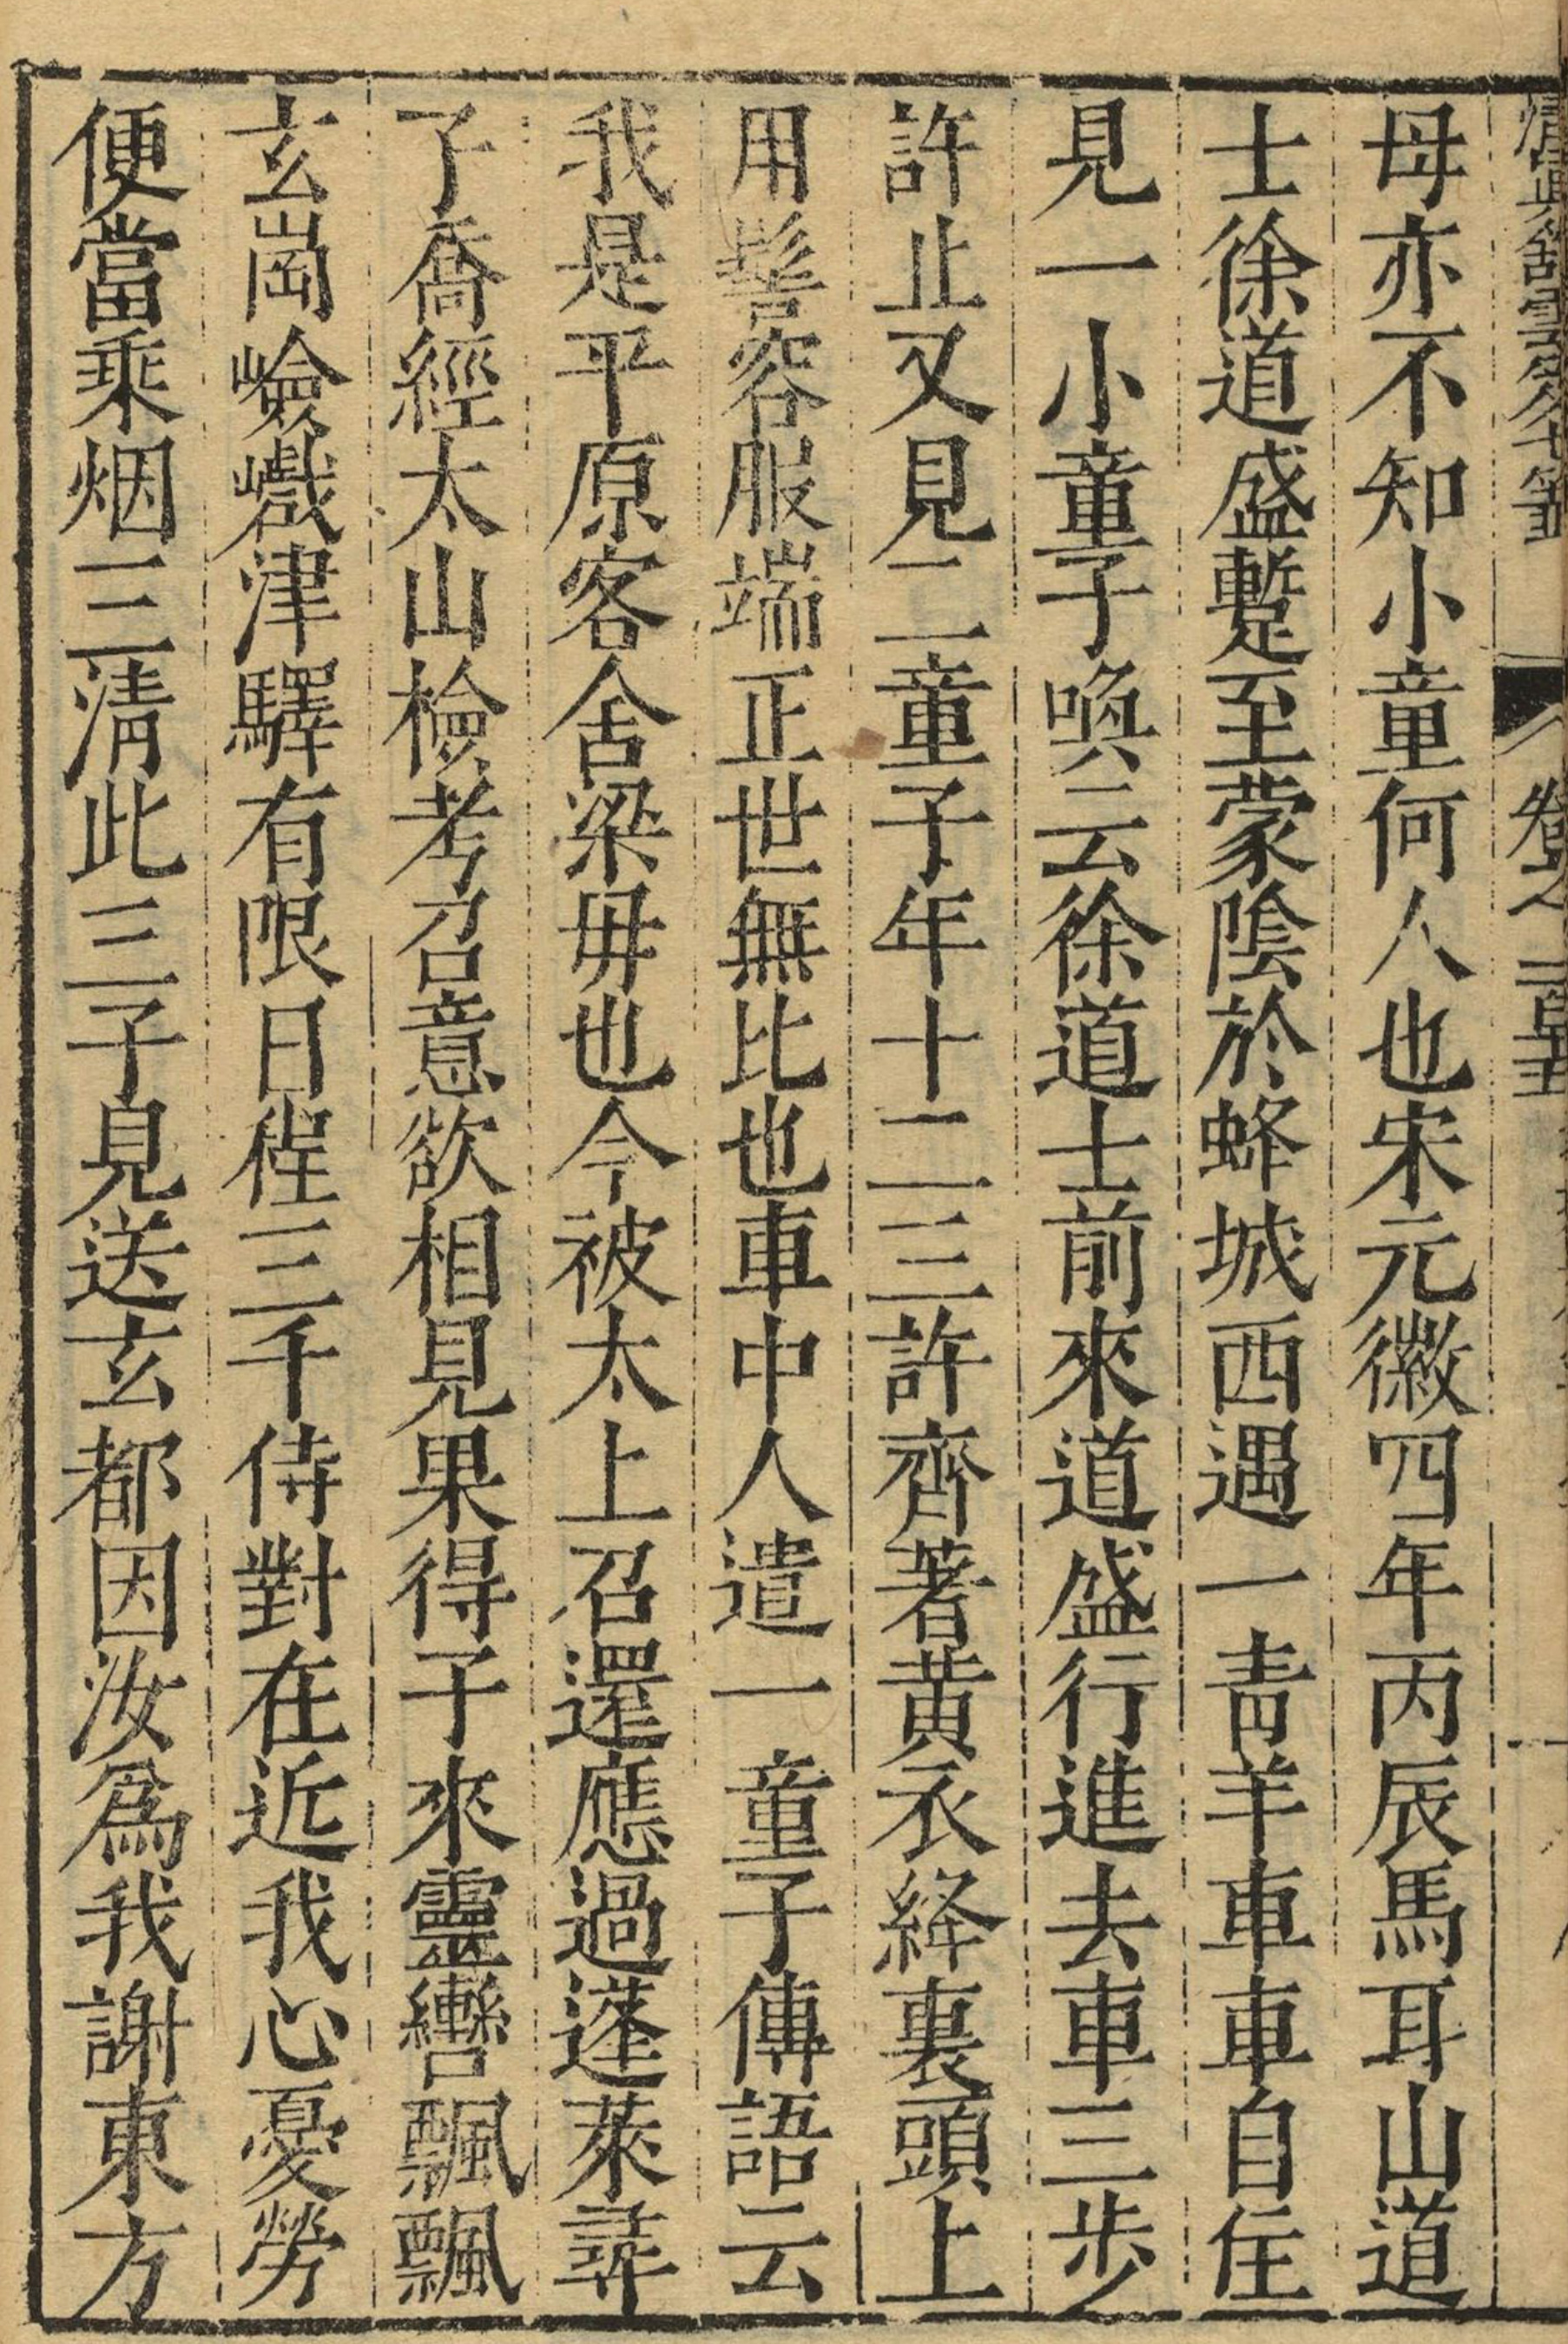 清真館雲笈七籤 卷之一百十五
母亦不知小童何人也宋元徽四年丙辰馬耳山道
士徐道盛蹔至蒙陰於蜂城西遇一青羊車車自住
見一小童子喚云徐道士前來道盛行進去車三步
許止又見二童子年十二三許齊著黄衣絳裏頭上
用髻容服端正世無比也車中人遣一童子傳語云
我是平原客舍梁毋也今被太上召還應過蓬萊尋
子喬經太山檢考召意欲相見果得子來靈轡飄飄
玄崗嶮巇津驛有限日程三千侍對在近我心憂勞
便當乘烟三清此三子見送玄都因汝爲我謝東方